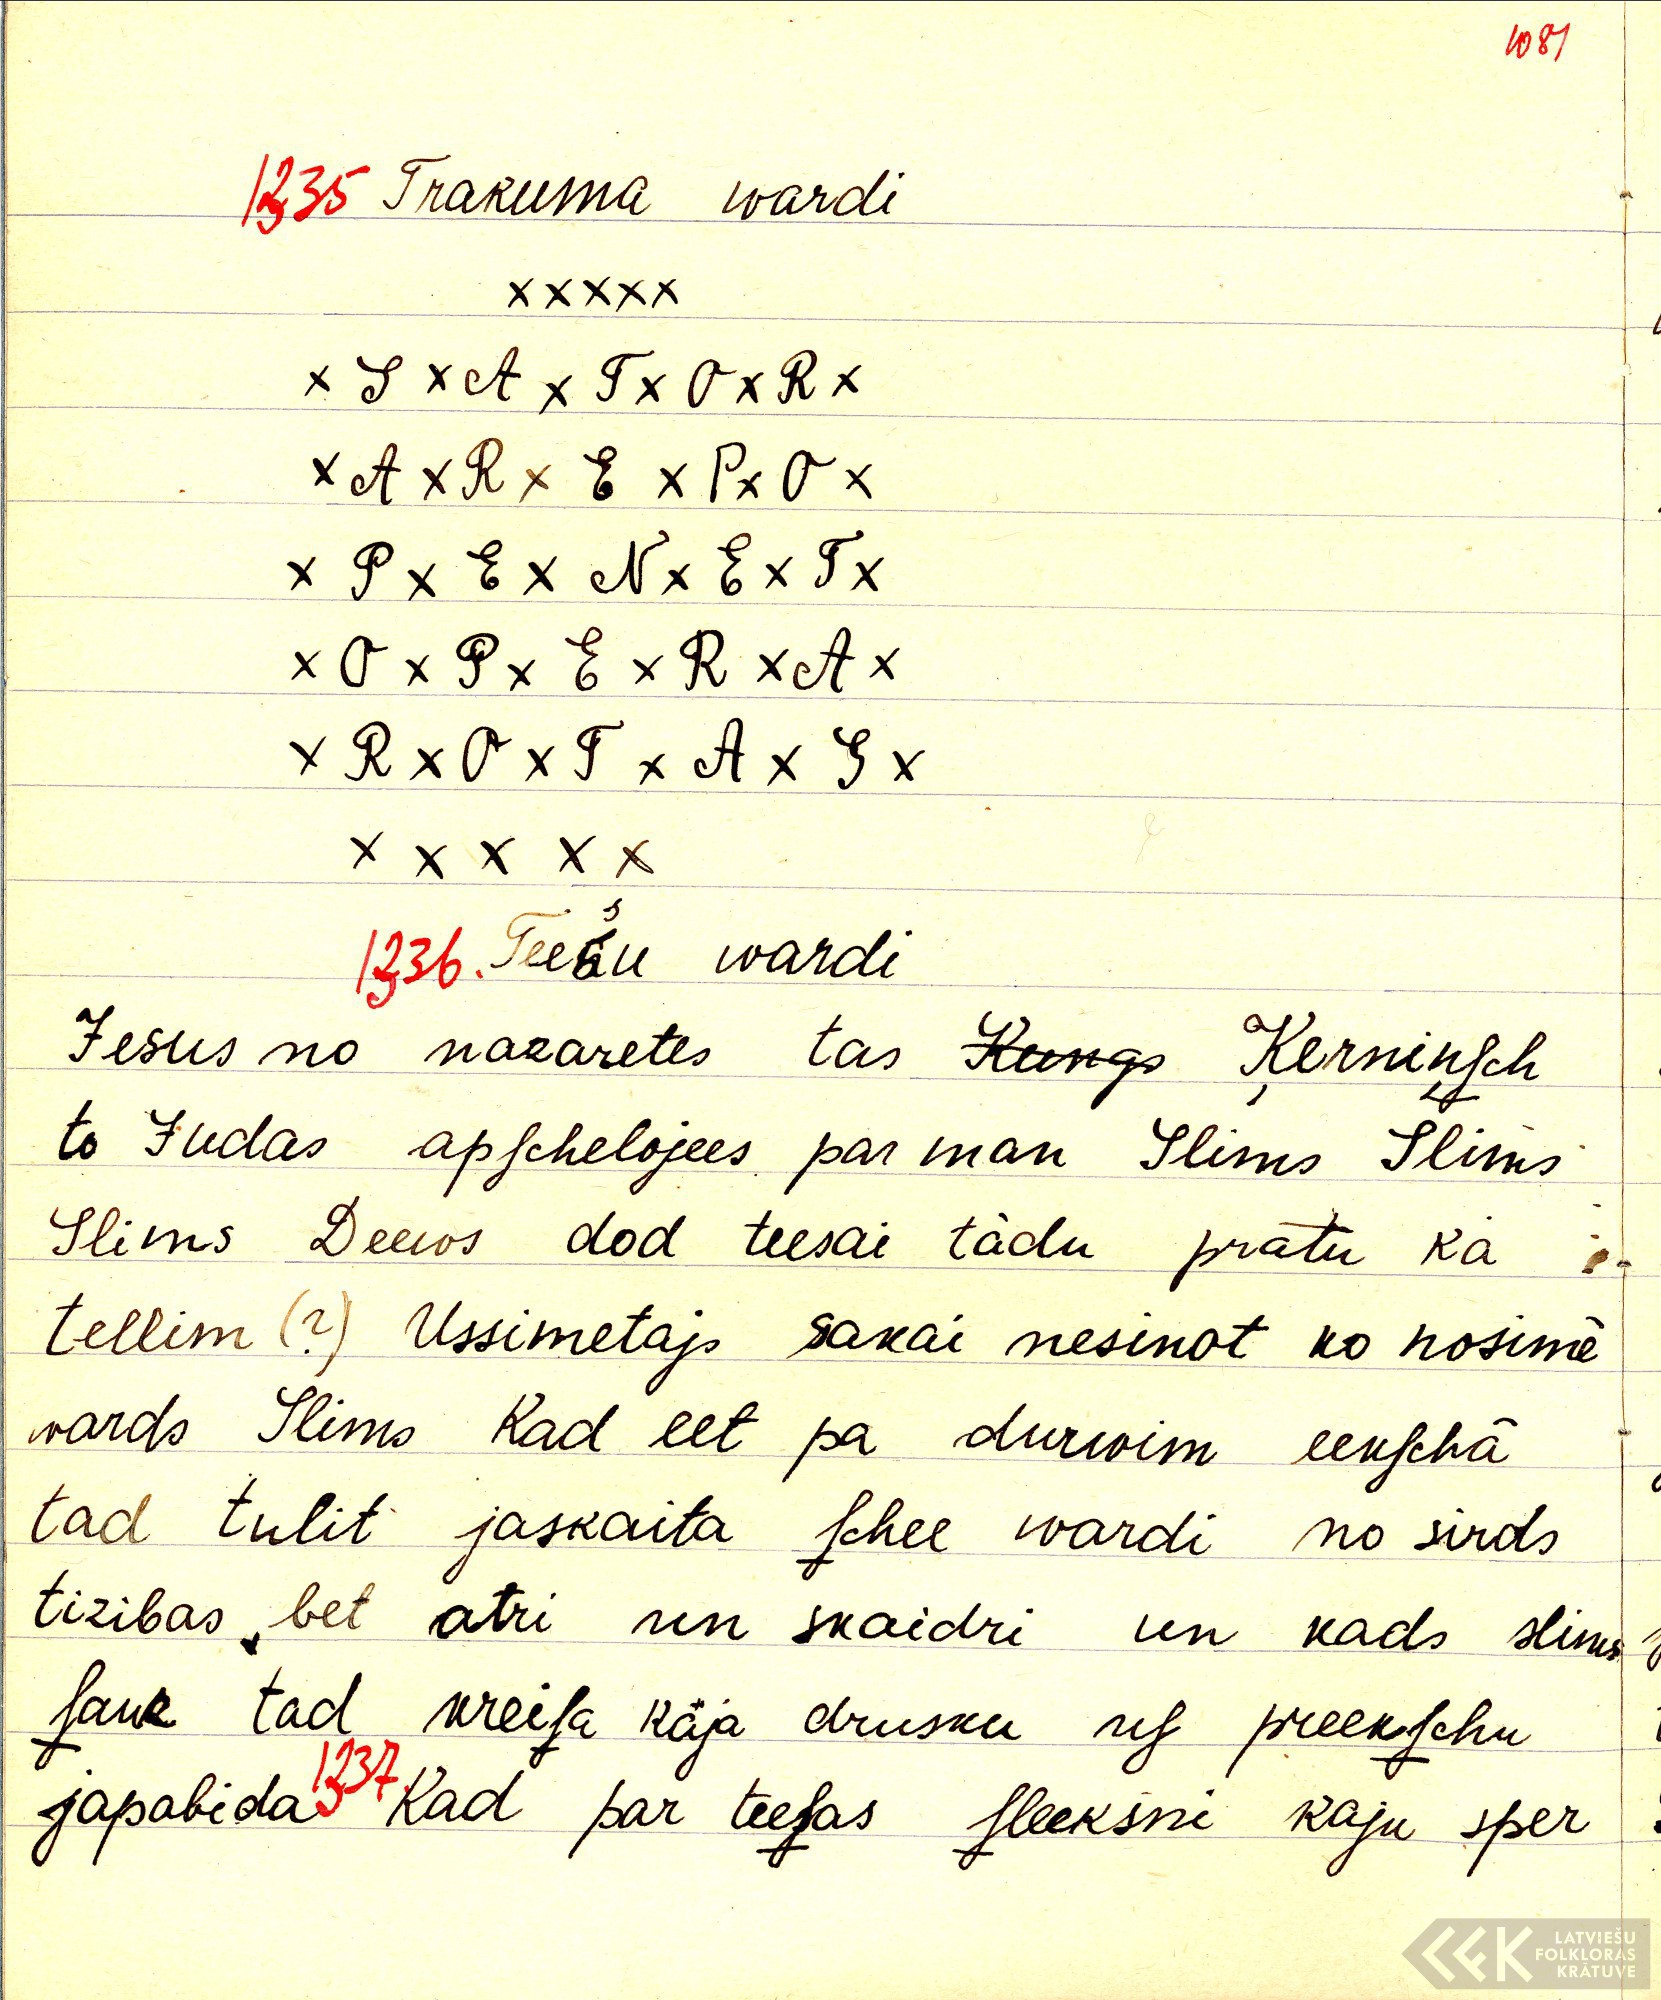 1081
1235 Trakuma wardi
xxxxx
x S x A x T x O x R x
x A x R x E x P x O x
x P x E x N x E x T x
x O x P x E x R x A x
x R x O x T x A x S x
x x x x x
1236. Teesu wardi
Jesus no nazaretes tas Kungs Ķerniņſch
to Judas apſchelojees par man Slims Slims
Slims Deews dod teesai tādu prātu kā
tellim (?) Ussimetajs sakai nesinot ko nosimē
wards Slims Kad eet pa durwim eekſchā
tad tulit jaskaita ſchee wardi no sirds
tizibas, bet atri un skaidri un kads slims
ſauc tad kreiſa kāja drusku uſ preekſchu
japabida 1237. Kad par teeſas ſleeksni kaju sper
LATVIEŠU
FOLKLORAS
KRĀTUVE